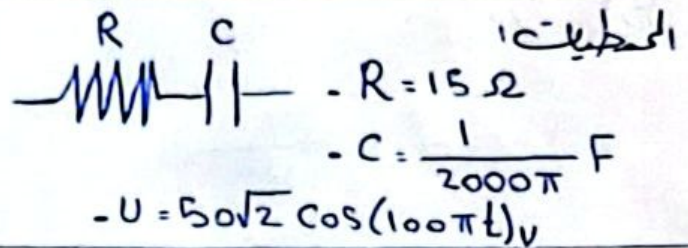 R C المعطيات:
- R = 15 Ω
- C = \frac{1}{2000π} F
- U = 50√2 cos(100πt)_V